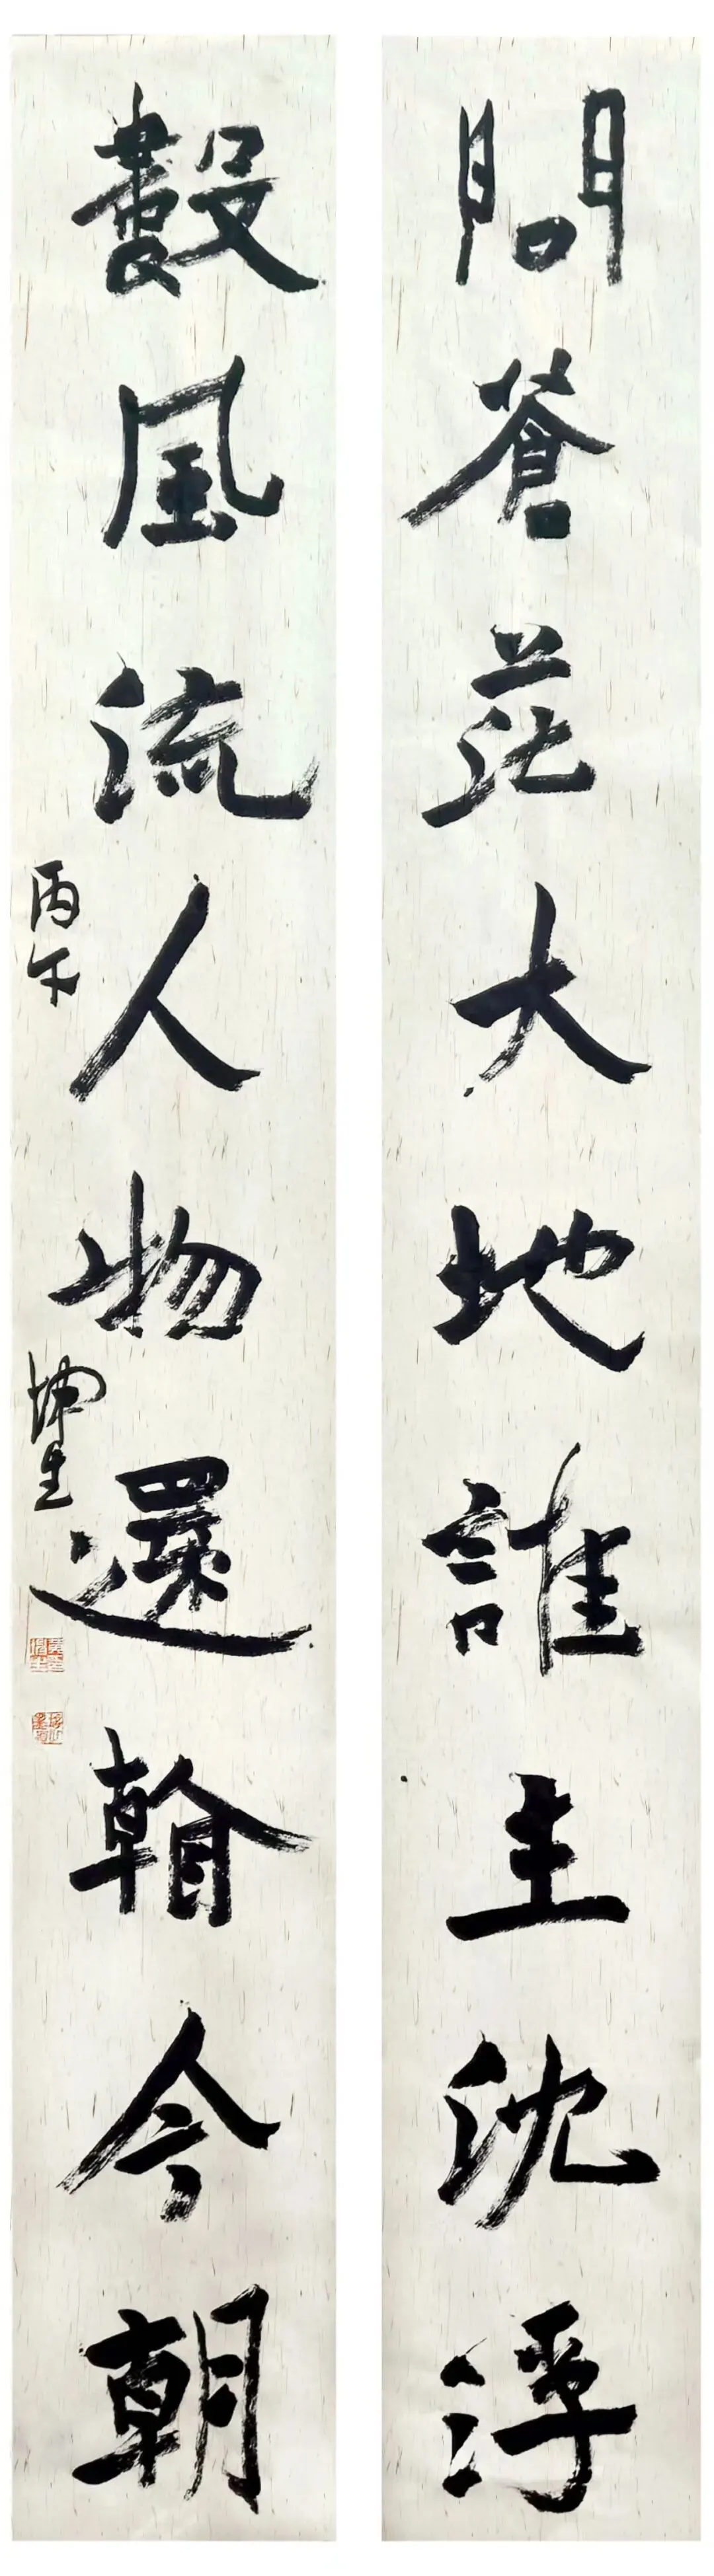 問蒼茫大地誰主沈浮
數風流人物還看今朝
丙午
坤生